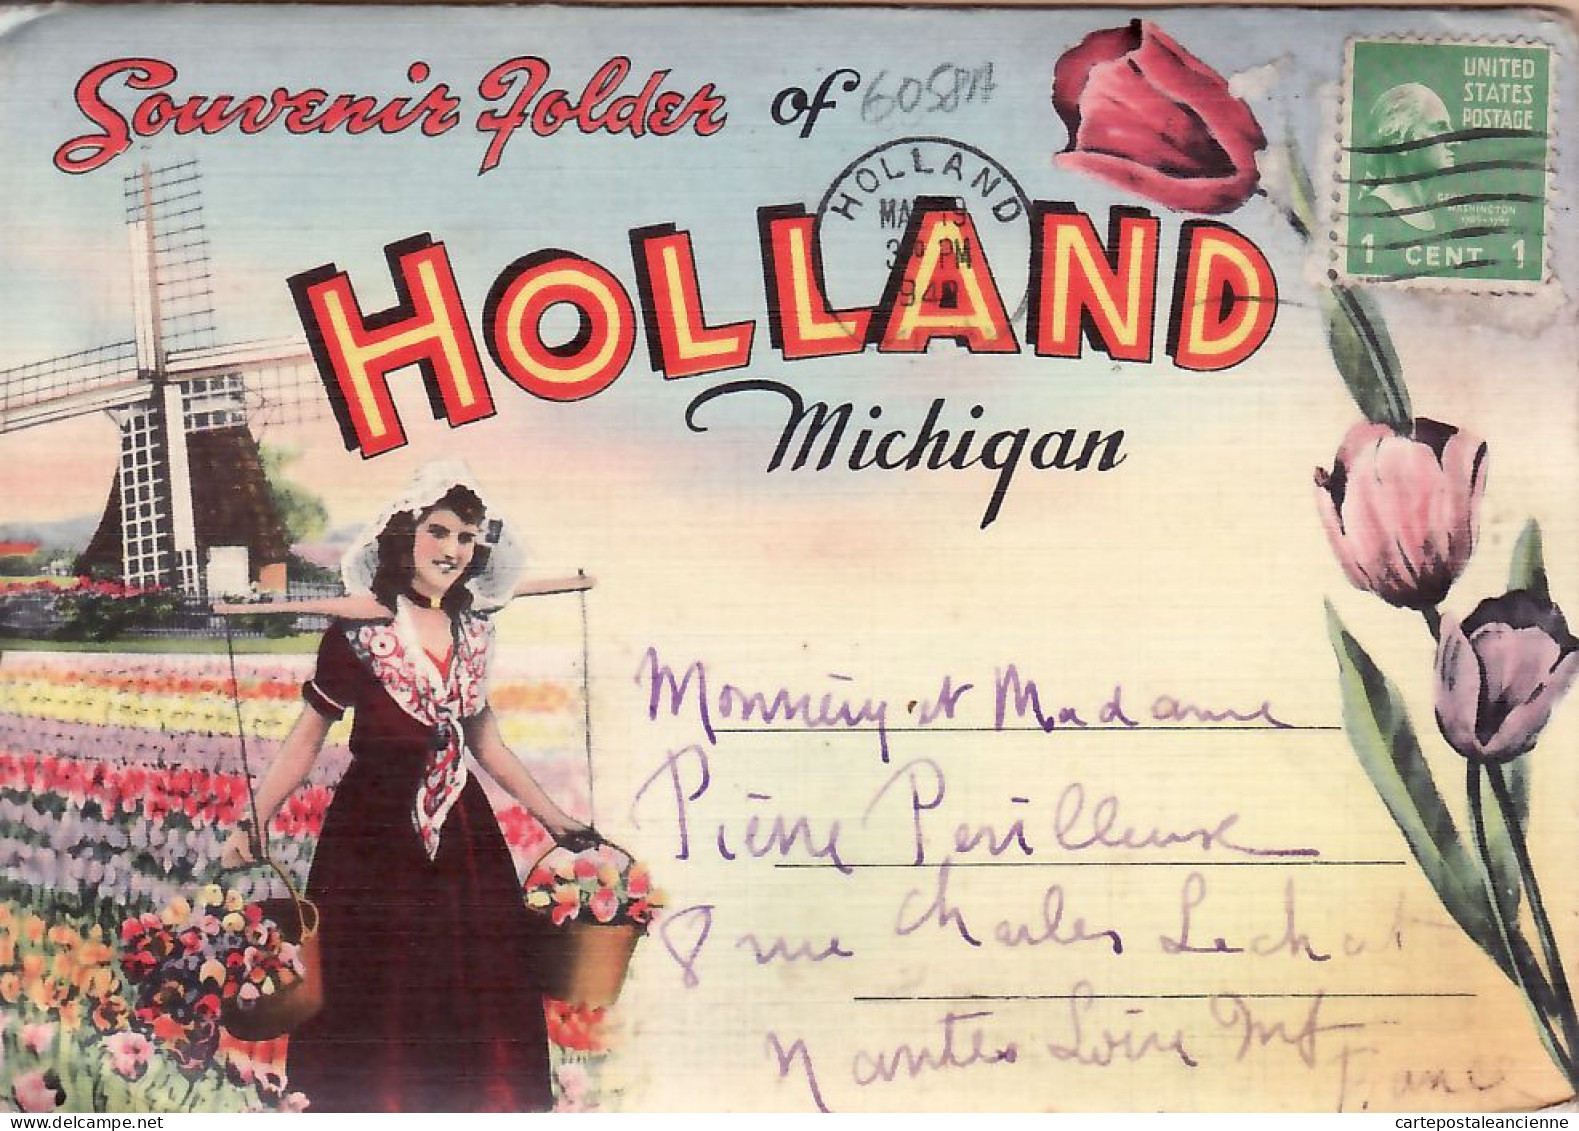 Souvenir Folder of 605PA
HOLLAND
Michigan
HOLLAND
MA 19
3 PM
194
UNITED
STATES
POSTAGE
WASHINGTON
1 CENT 1
et Madame
Pierre Perilleux
8 rue Charles Lechat
Nantes Loire Inf
France
cartepostaleancienne.com